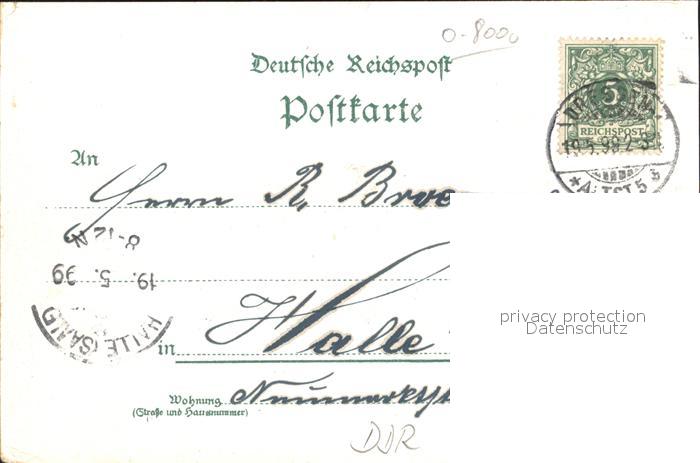 0-8000
Deutsche Reichspost
Postkarte
5
REICHSPOST
19.5.99.2-3
*ALTST.5
An
Herrn R.
8-12 N
19. 5. 99
HALLE (SAALE)
privacy protection
Datenschutz
in Halle
Wohnung
(Straße und Hausnummer)
DDR